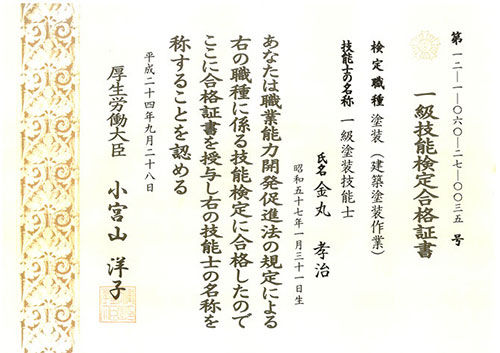 第一二―一―〇六〇―二七―〇〇三五 号
一級技能検定合格証書
検定職種 塗装(建築塗装作業)
技能士の名称 一級塗装技能士
氏名 金丸 孝治
昭和五十七年一月三十一日生
あなたは職業能力開発促進法の規定による
右の職種に係る技能検定に合格したので
ここに合格証書を授与し右の技能士の名称を
称することを認める
平成二十四年九月二十八日
厚生労働大臣 小宮山 洋子